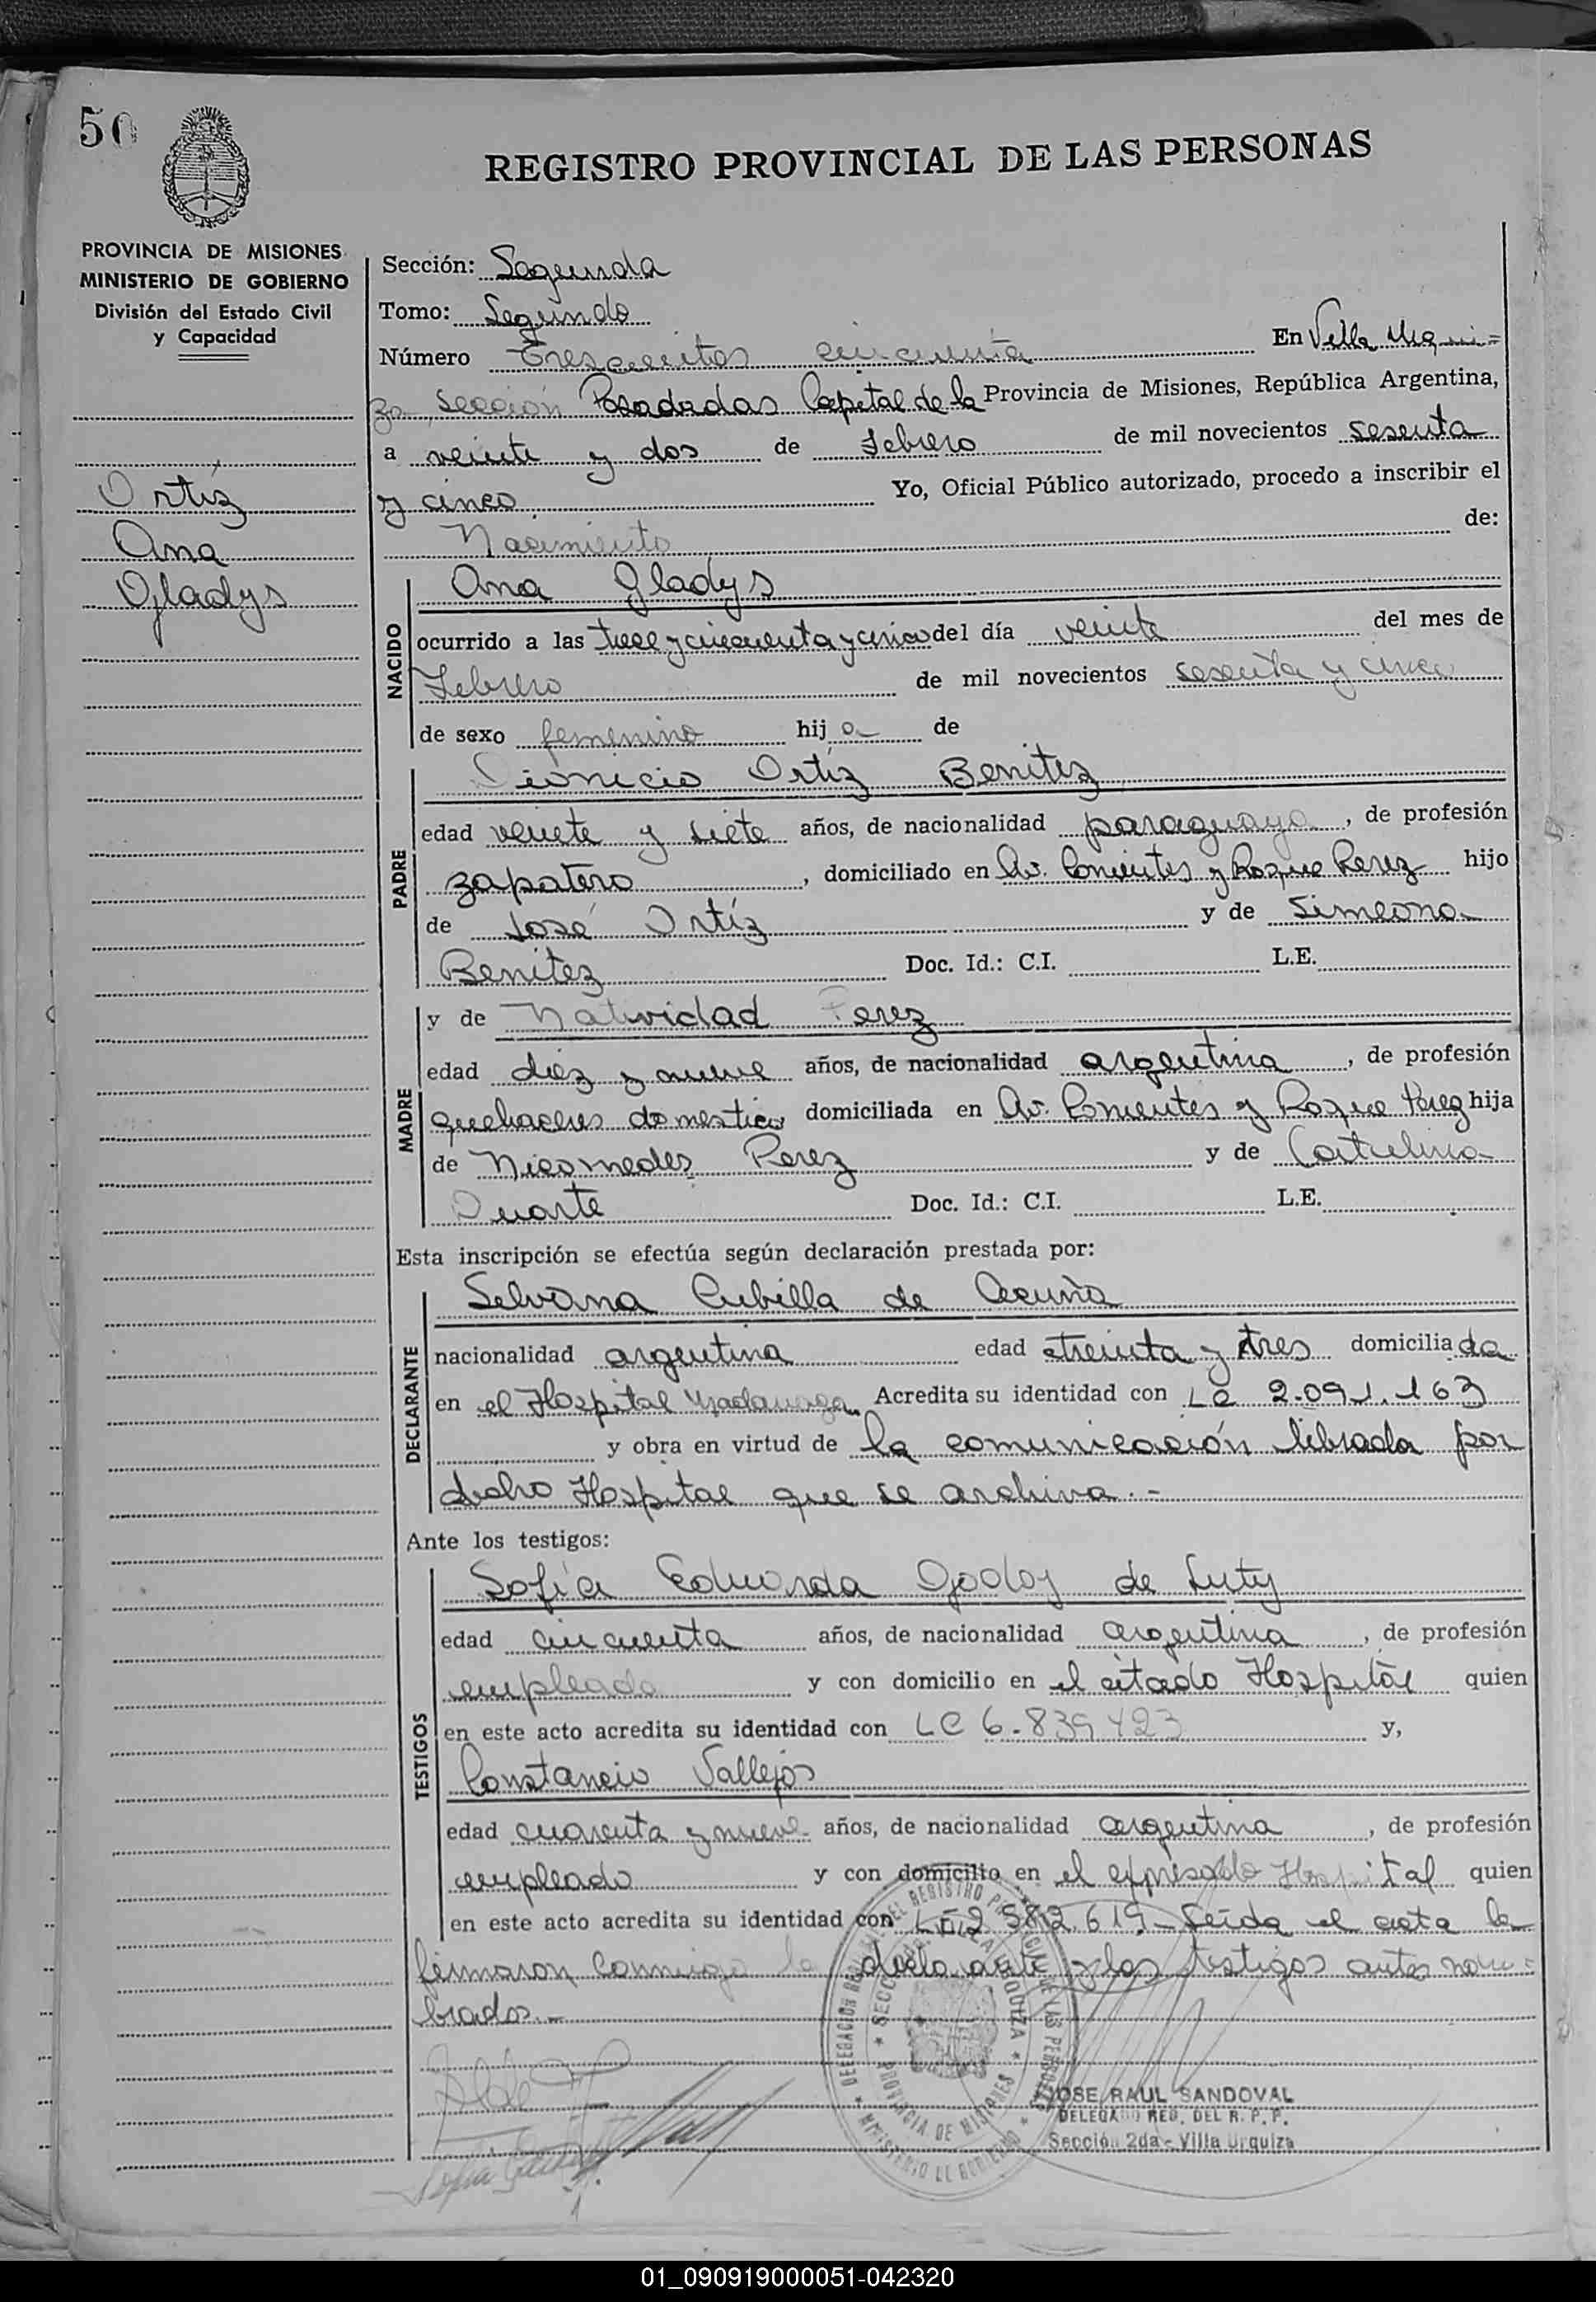 50
REGISTRO PROVINCIAL DE LAS PERSONAS
PROVINCIA DE MISIONES
MINISTERIO DE GOBIERNO
División del Estado Civil
y Capacidad
Ortíz
Ana
Gladys
Sección: Segunda
Tomo: Segundo
Número Trescientos cincuenta En Villa Urqui=
za Sección Posadadas Capital de la Provincia de Misiones, República Argentina,
a veinte y dos de febrero de mil novecientos sesenta
y cinco Yo, Oficial Público autorizado, procedo a inscribir el
Nacimiento de:
NACIDO
Ana Gladys
ocurrido a las trece y cincuenta y cinco del día veinte del mes de
Febrero de mil novecientos sesenta y cinco
de sexo femenino hija de
PADRE
Dionicio Ortíz Benitez
edad veinte y siete años, de nacionalidad paraguaya, de profesión
zapatero, domiciliado en Av. Corrientes y Roque Perez hijo
de José Ortíz y de Simeona
Benitez Doc. Id.: C.I. L.E.
MADRE
y de Natividad Perez
edad diez y nueve años, de nacionalidad argentina, de profesión
quehaceres domestico domiciliada en Av. Corrientes y Roque Perez hija
de Nicomedes Perez y de Catalina
Duarte Doc. Id.: C.I. L.E.
Esta inscripción se efectúa según declaración prestada por:
DECLARANTE
Selvana Cubilla de Acuña
nacionalidad argentina edad treinta y tres domiciliada
en el Hospital Madariaga Acredita su identidad con LC 2.091.163
y obra en virtud de la comunicación librada por
dicho Hospital que se archiva.-
Ante los testigos:
TESTIGOS
Sofía Eduarda Godoy de Luty
edad cincuenta años, de nacionalidad argentina, de profesión
empleada y con domicilio en el citado Hospital quien
en este acto acredita su identidad con LC 6.839.423 y,
Constancio Vallejos
edad cuarenta y nueve años, de nacionalidad argentina, de profesión
empleado y con domicilio en el expresado Hospital quien
en este acto acredita su identidad con LE 2.582.619- Leída el acta la
firmaron conmigo la declarante y los testigos antes nom=
brados.-
JOSE RAUL SANDOVAL
DELEGADO REG. DEL R. P. P.
Sección 2da - Villa Urquiza
01_090919000051-042320